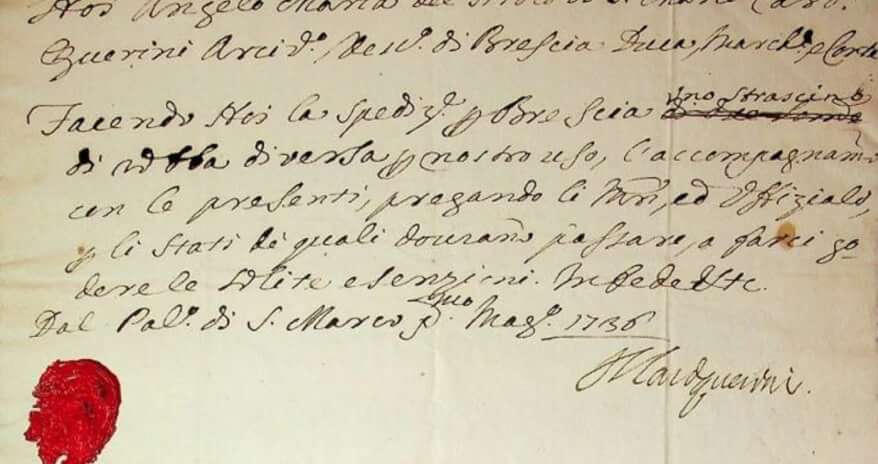 Noi Angelo Maria del titolo di S. Marc. Car.
Querini Arciv.º Vesc.º di Brescia Duca, March.e, e Conte
Facendo Noi la spediz.e p Brescia uno strascino
di robba diversa p nostro uso, l'accompagnam.o
con le presenti, pregando li Min.ri, ed Offiziali,
p li Stati de quali dovrano passare, a farci go-
dere le solite esenzioni. In fede etc.
Dal Pal.º di S. Marco p.º Mag.º 1736
A Card Querini.